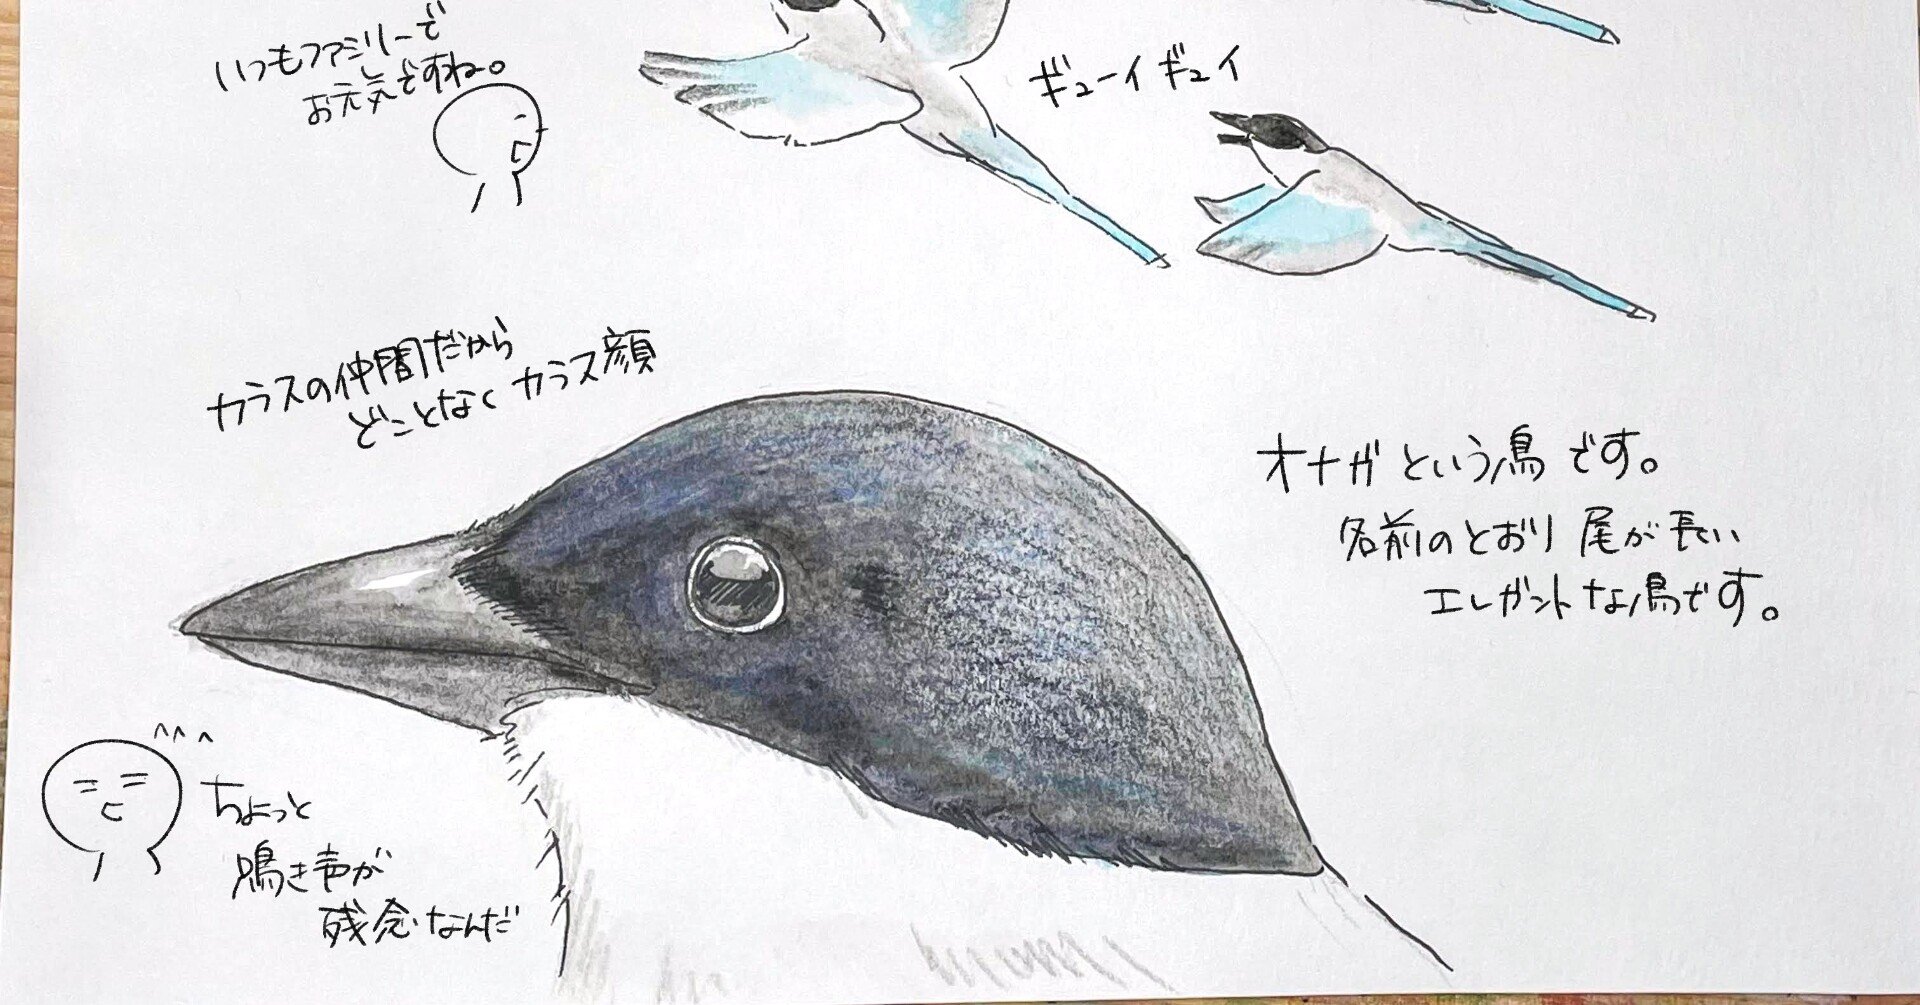 いつもファミリーで
お元気ですね。
ギューイギュイ
カラスの仲間だから
どことなくカラス顔
オナガという鳥です。
名前のとおり尾が長い
エレガントな鳥です。
ちょっと
鳴き声が
残念なんだ